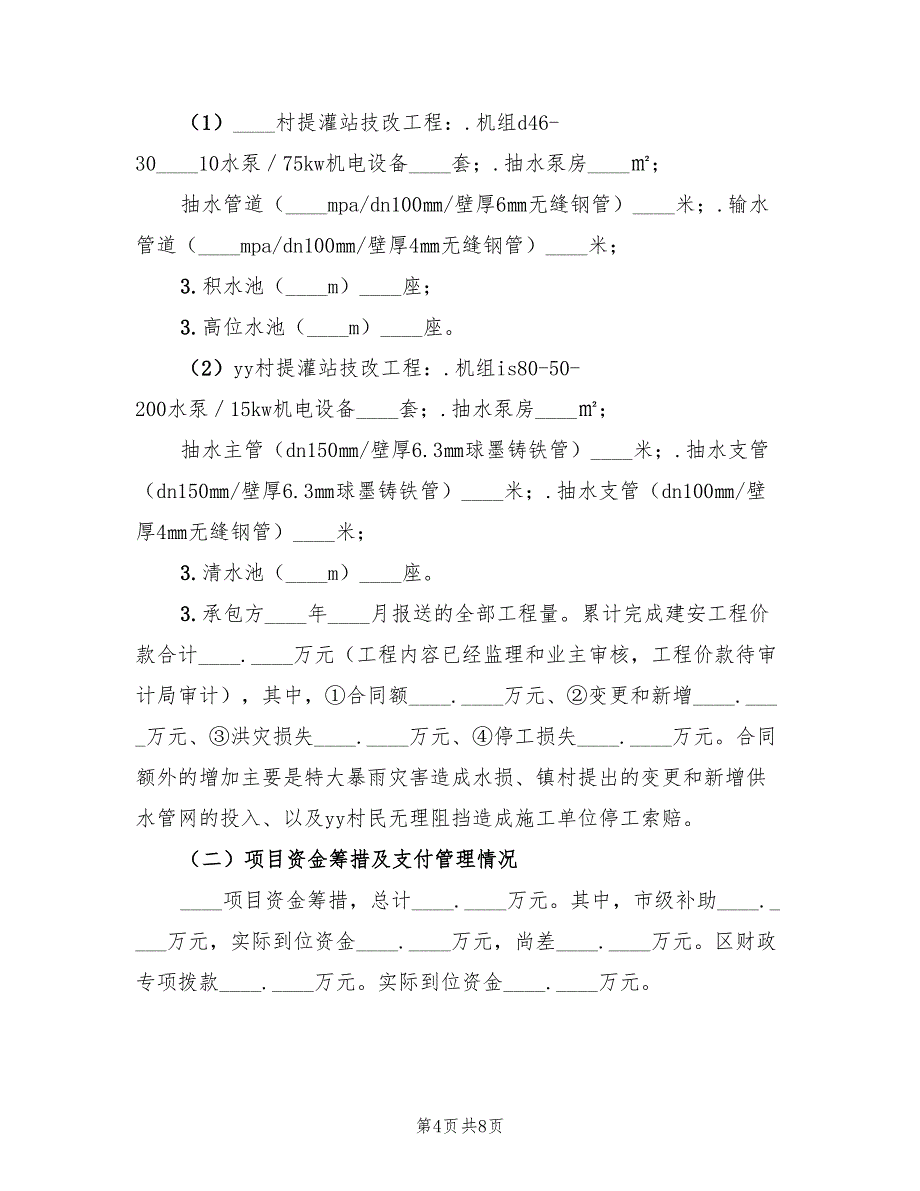 （1）____村提灌站技改工程：.机组d46-
30____10水泵／75kw机电设备____套；.抽水泵房____㎡；
抽水管道（____mpa/dn100mm/壁厚6mm无缝钢管）____米；.输水
管道（____mpa/dn100mm/壁厚4mm无缝钢管）____米；
3.积水池（____m）____座；
3.高位水池（____m）____座。
（2）yy村提灌站技改工程：.机组is80-50-
200水泵／15kw机电设备____套；.抽水泵房____㎡；
抽水主管（dn150mm/壁厚6.3mm球墨铸铁管）____米；.抽水支管
（dn150mm/壁厚6.3mm球墨铸铁管）____米；.抽水支管（dn100mm/壁
厚4mm无缝钢管）____米；
3.清水池（____m）____座。
3.承包方____年____月报送的全部工程量。累计完成建安工程价
款合计____.____万元（工程内容已经监理和业主审核，工程价款待审
计局审计），其中，①合同额____.____万元、②变更和新增____.___
_万元、③洪灾损失____.____万元、④停工损失____.____万元。合同
额外的增加主要是特大暴雨灾害造成水损、镇村提出的变更和新增供
水管网的投入、以及yy村民无理阻挡造成施工单位停工索赔。
（二）项目资金筹措及支付管理情况
____项目资金筹措，总计____.____万元。其中，市级补助____._
___万元，实际到位资金____.____万元，尚差____.____万元。区财政
专项拨款____.____万元。实际到位资金____.____万元。
第4页共8页